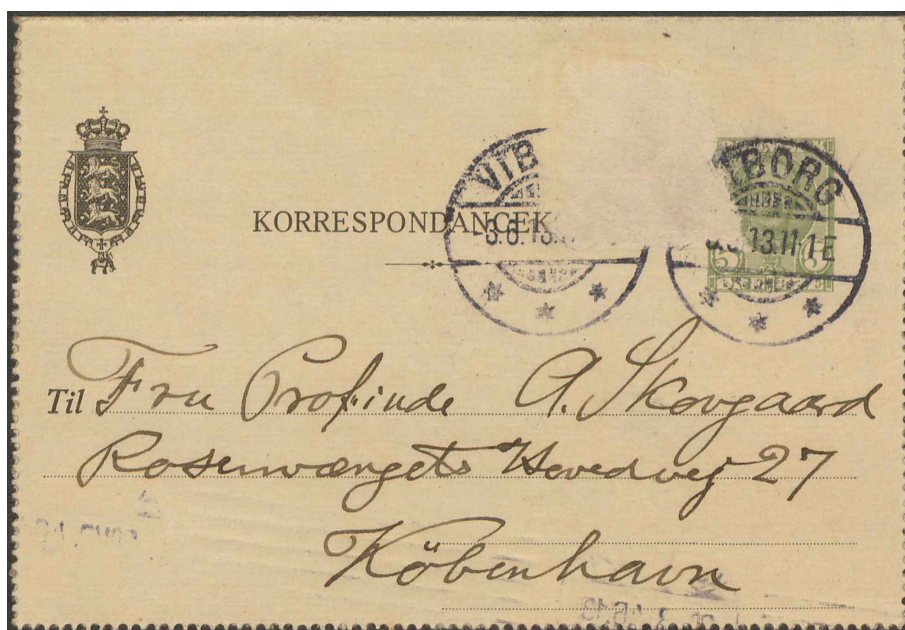 KORRESPONDANCEK
VIB
-3.6.13.
IBORG
.13.11-1E
5 5
Til Fru Prof.inde A. Skovgaard
Rosenvængets Hovedvej 27
København